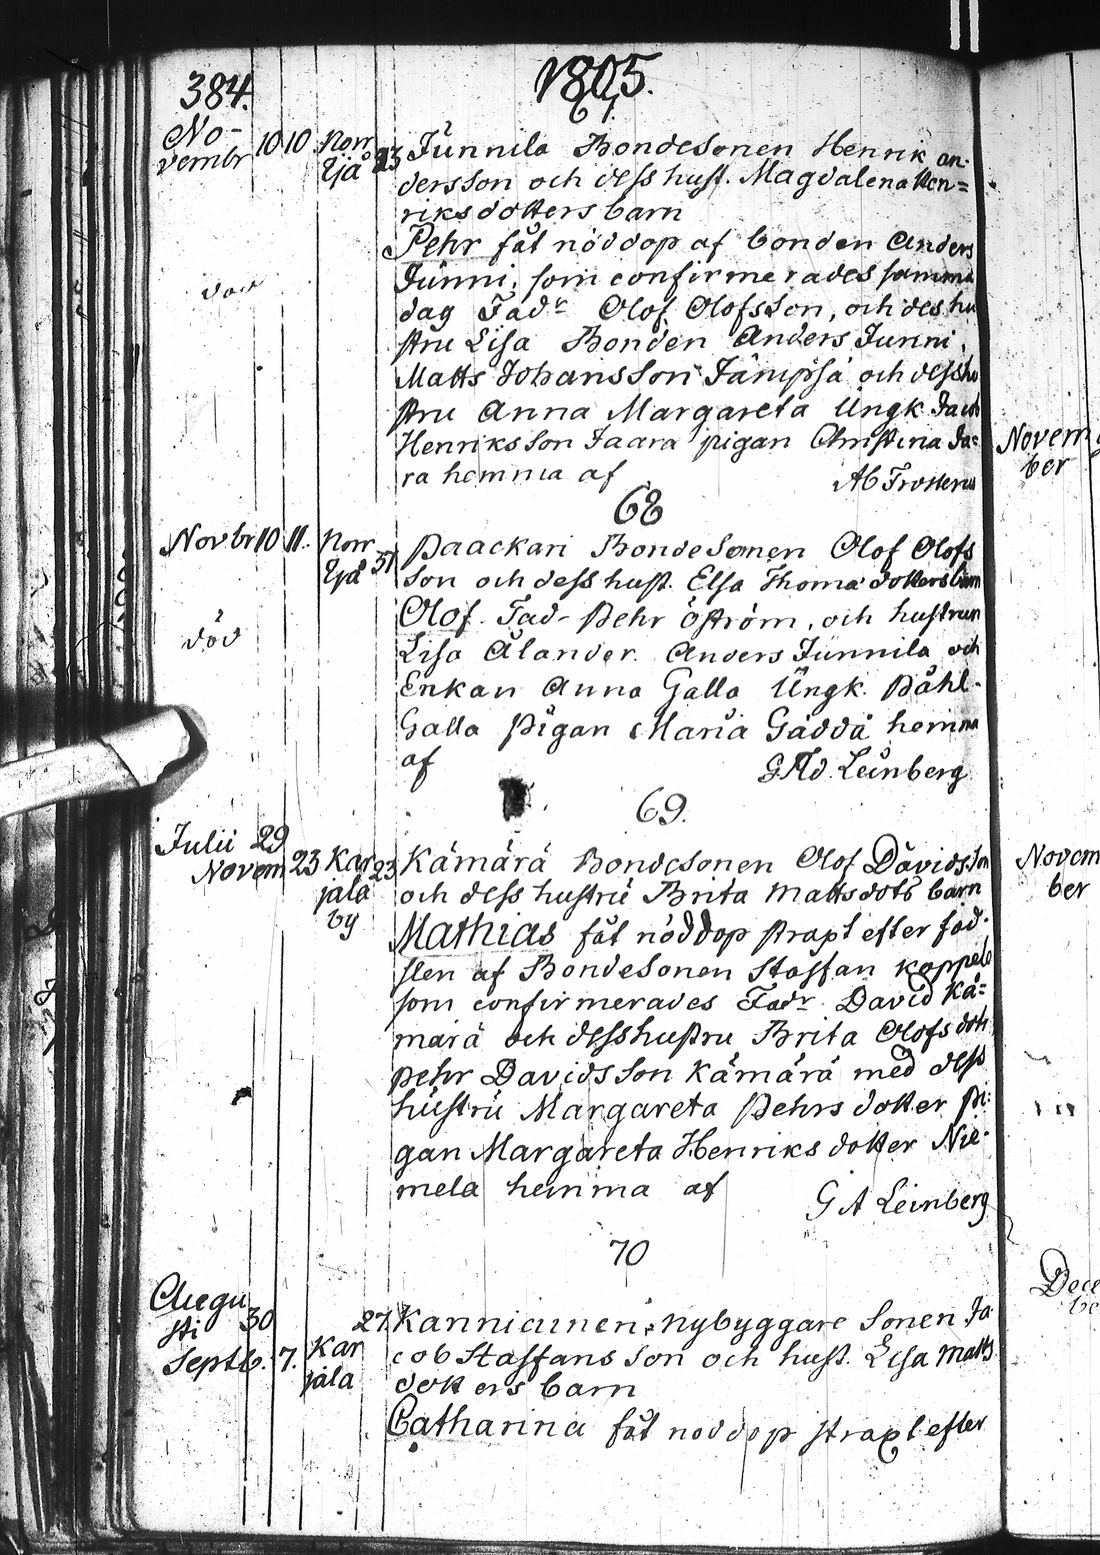 384.
1805.
67.
No-
vembr
10 10
Norr
Ijå
23
Junnila Bondesonen Henrik an-
dersson och dess hust. Magdalena Hen=
riksdotters barn
Pehr fåt nöddop af bonden Anders
Junni, som confirmerades samma
död
dag Fadr Olof Olofsson, och des hu
stru Lisa Bonden Anders Junni,
Matts Johansson Jämpsä och dess hu
stru Anna Margareta Ungk Jacob
Henriksson Jaara pigan Christina Ja=
ra hemma af
Ab Frosterus
68
Novbr 10 11.
Norr
Ijå
31
Paackari Bondesonen Olof Olofs
son och dess hust. Elsa Thomædotters barn
Olof. Fad- Pehr Öström, och hustrun
död
Lisa Ålander. Anders Junnila och
Enkan Anna Galla Ungk. Påhl-
Galla Pigan Maria Gäddä hemma
af
G Ad. Leinberg
69.
Julii 29
Novem 23
Kar
jala
by
23
Kämärä Bondesonen Olof Davidsson
och dess hustru Brita Mattsdots barn
Mathias fåt nöddop straxt efter föd-
slen af Bondesonen Staffan Koppelo
som confirmerades Fadr. David Kä=
märä och dess hustru Brita Olofsdotr
pehr Davidsson Kämärä med dess
hustru Margareta Pehrsdotter Pi:
gan Margareta Henriksdotter Nie-
mela hemma af
G A Leinberg
70
Augu
sti 30
Septb. 7.
Kar
jala
27
Kanniainen, nybyggare Sonen Ja
cob Staffansson och hust. Lisa Matts
dotters barn
Catharina fåt nöddop straxt efter
Novem
ber
Novem
ber
Dece
be